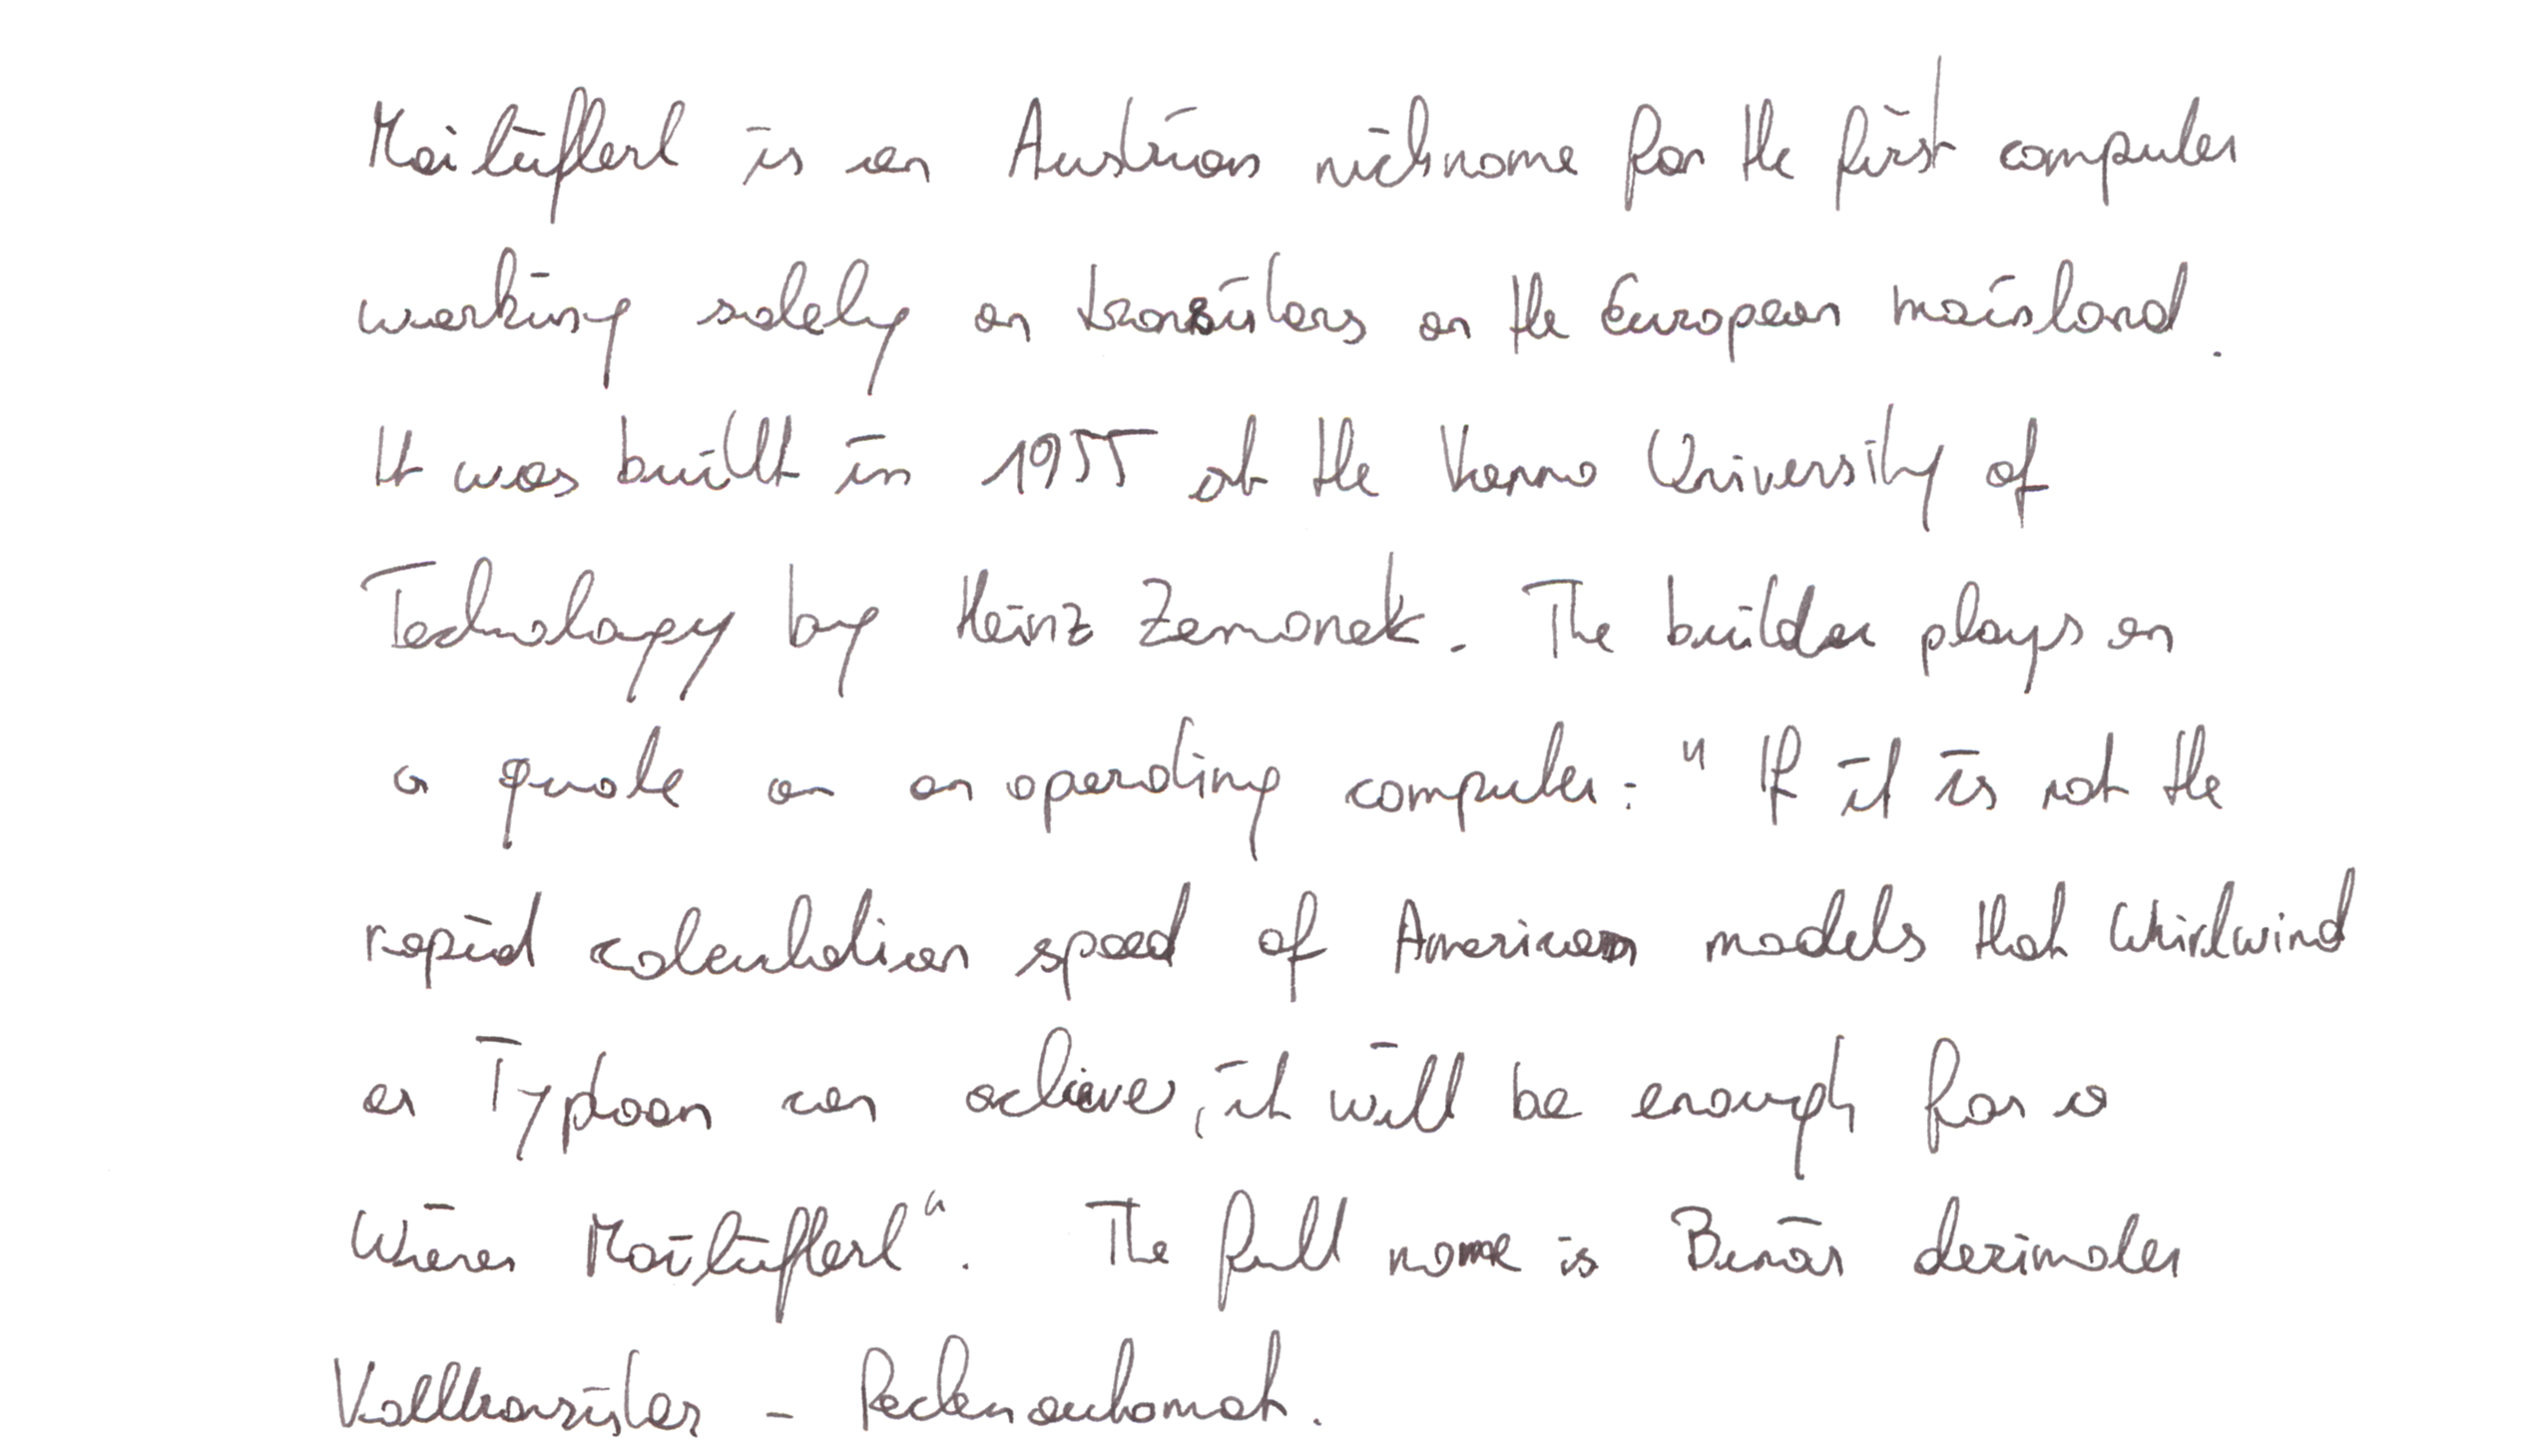 Mailüfterl is an Austrian nickname for the first computer
working solely on transistors on the European mainland.
It was built in 1955 at the Vienna University of
Technology by Heinz Zemanek. The builder plays on
a quote on an operating computer: "If it is not the
rapid calculation speed of American models that Whirlwind
or Typhoon can achieve, it will be enough for a
Wiener Mailüfterl". The full name is Binär dezimaler
Volltransistor - Rechenautomat.